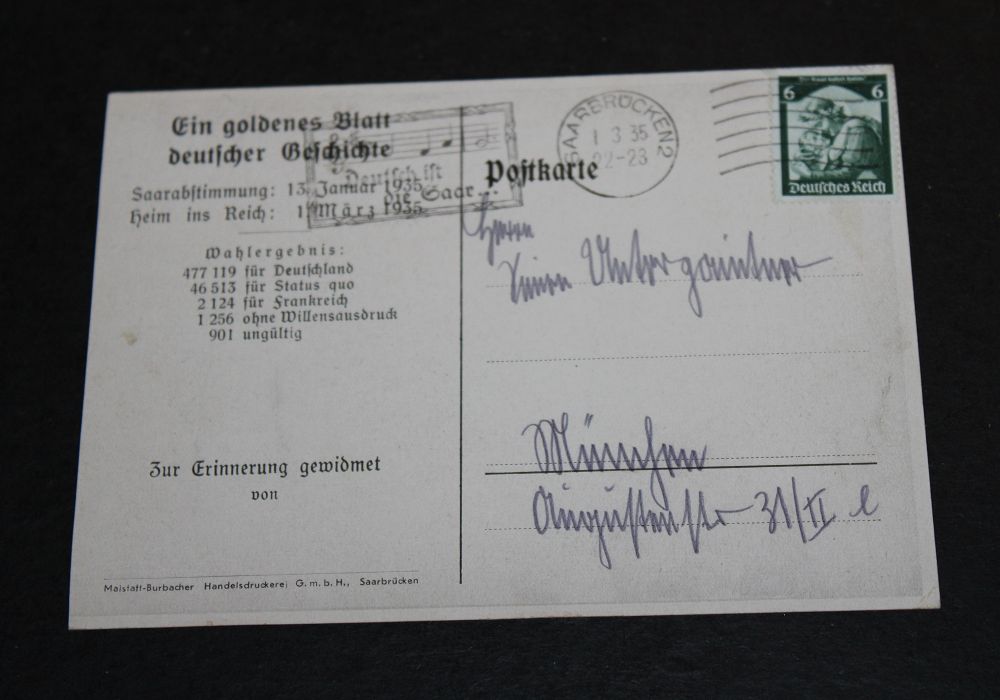 Ein goldenes Blatt
deutscher Geschichte
Saarabstimmung: 13. Januar 1935
Heim ins Reich: 1. März 1935
Wahlergebnis:
477 119 für Deutschland
46 513 für Status quo
2 124 für Frankreich
1 256 ohne Willensausdruck
901 ungültig
Zur Erinnerung gewidmet
von
Maistatt-Burbacher Handelsdruckerei G. m. b. H., Saarbrücken
Deutsch ist
die Saar...
SAARBRÜCKEN 2
1 3 35
22-23
6 6
Deutsches Reich
Postkarte
Herrn
Untergaintner
München
Augustenstr 31/II l